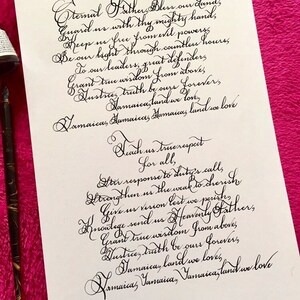 Eternal Father, Bless our Land,
Guard us with thy mighty hand,
Keep us free from evil powers,
Be our light through countless hours,
To our leaders, great defenders,
Grant true wisdom from above,
Justice, truth be ours forever,
Jamaica, land we love,
Jamaica, Jamaica, Jamaica, land we love
Teach us true respect
for all,
Stir response to duty's call,
Strengthen us the weak to cherish,
Give us vision lest we perish,
Knowledge send us Heavenly Father,
Grant true wisdom from above,
Justice, truth be ours forever,
Jamaica, land we love,
Jamaica, Jamaica, Jamaica, land we love